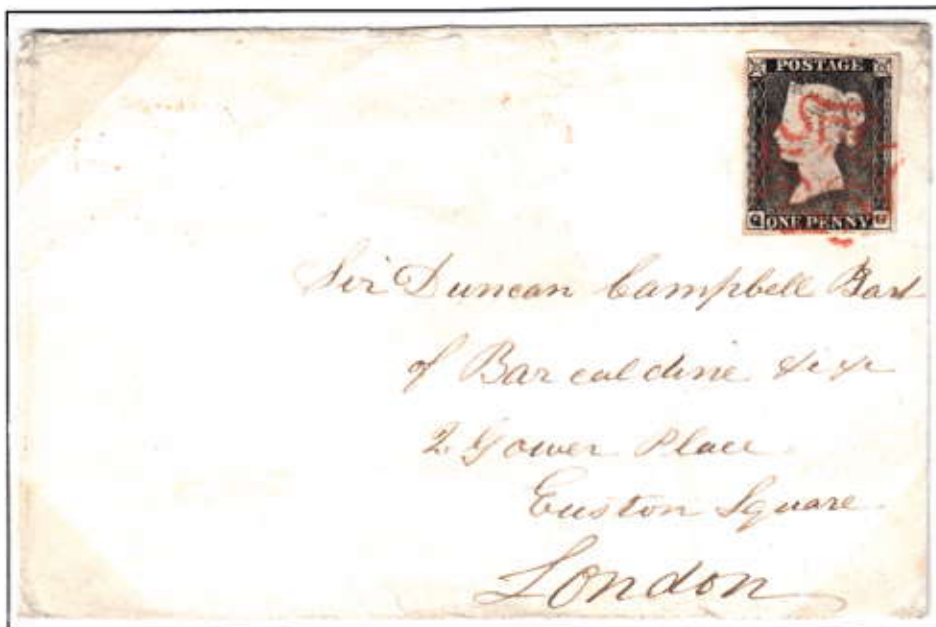 POSTAGE
Q ONE PENNY G
Sir Duncan Campbell Bart
of Barcaldine &c &c
2 Gower Place
Euston Square
London